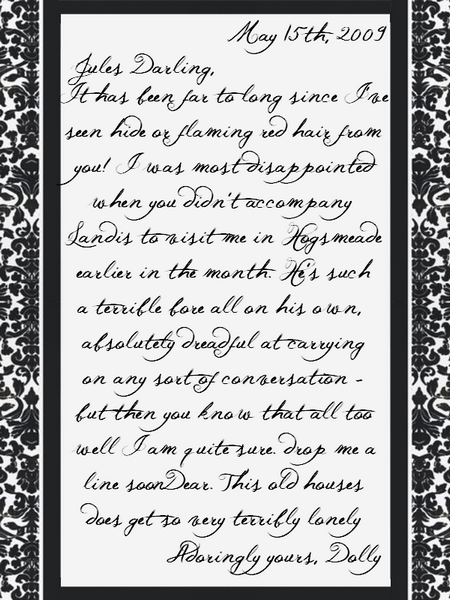 May 15th, 2009
Jules Darling,
It has been far to long since I've
seen hide or flaming red hair from
you! I was most disappointed
when you didn't accompany
Landis to visit me in Hogsmeade
earlier in the month. He's such
a terrible bore all on his own,
absolutely dreadful at carrying
on any sort of conversation -
but then you know that all too
well I am quite sure. drop me a
line soon Dear. This old houses
does get so very terribly lonely
Adoringly yours, Dolly